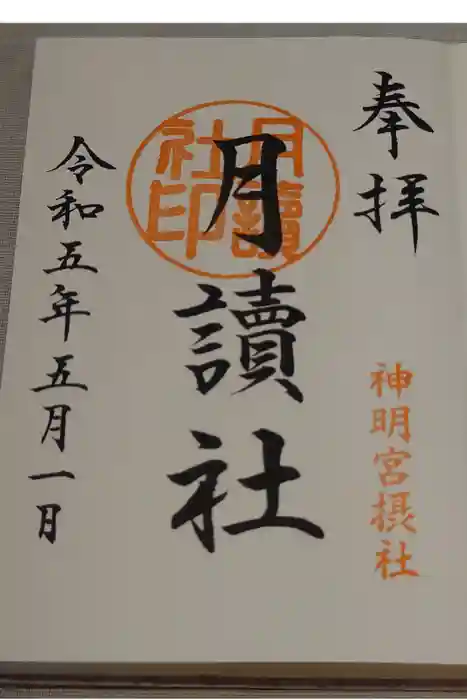 奉拝
神明宮摂社
月讀社
月讀社印
令和五年五月一日